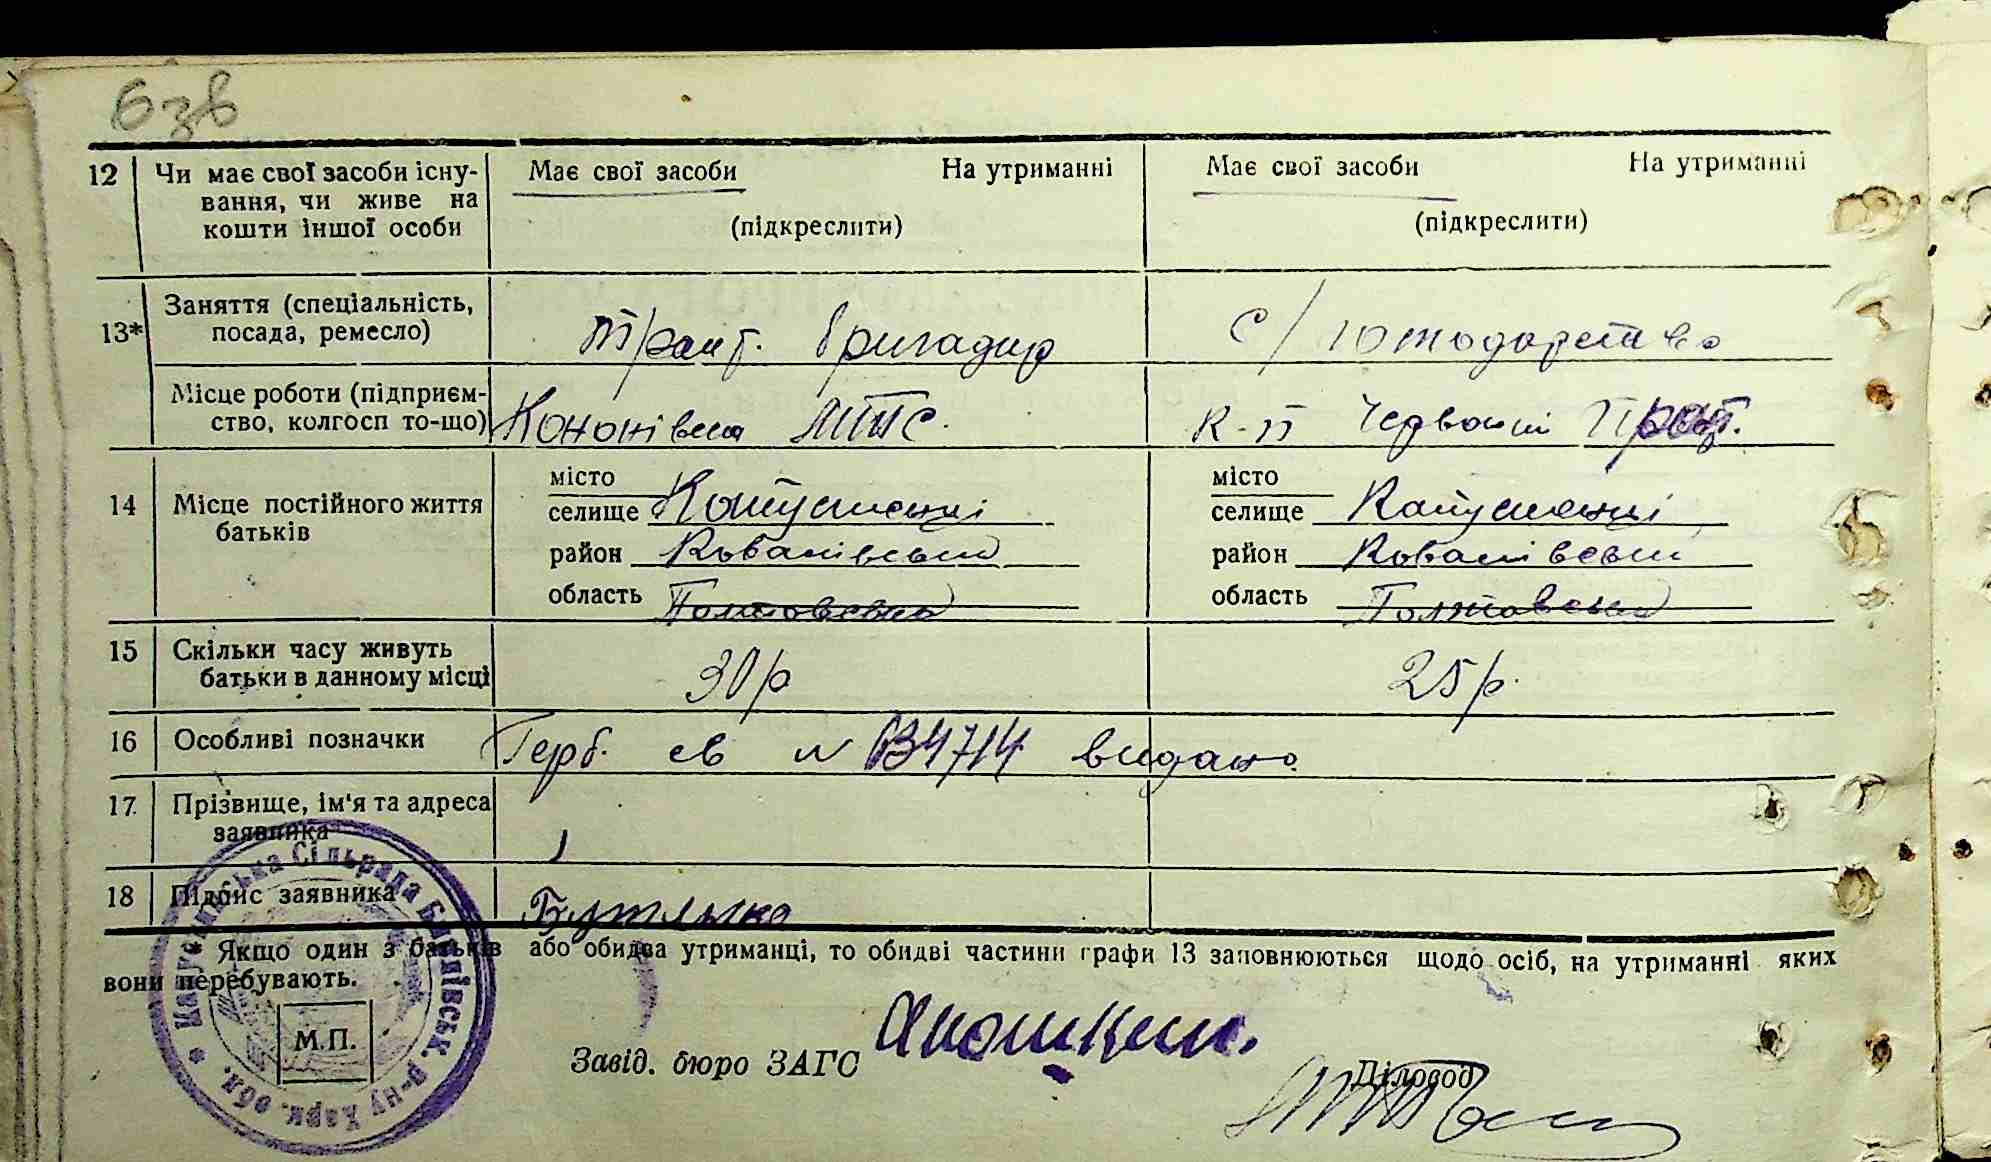 6 зв
12 Чи має свої засоби існу- Має свої засоби На утриманні Має свої засоби На утриманні
вання, чи живе на
кошти іншої особи (підкреслити) (підкреслити)
13* Заняття (спеціальність,
посада, ремесло) Тракт. бригадир С/господарство
Місце роботи (підприєм-
ство, колгосп то-що) Кононівська МТС. к-п Червоний Прап.
14 Місце постійного життя батьків
місто місто
селище Капустенці селище Капустенці
район район
область Полтавська область Полтавська
15 Скільки часу живуть
батьки в данному місці 30 р 25 р.
16 Особливі позначки Герб. св № 134714 видано.
17 Прізвище, ім'я та адреса
заявника
18 Підпис заявника
* Якщо один з батьків або обидва утриманці, то обидві частини графи 13 заповнюються щодо осіб, на утриманні яких
вони перебувають.
М.П.
Завід. бюро ЗАГС
Діловод
Сільрада р-ну Харк. обл.